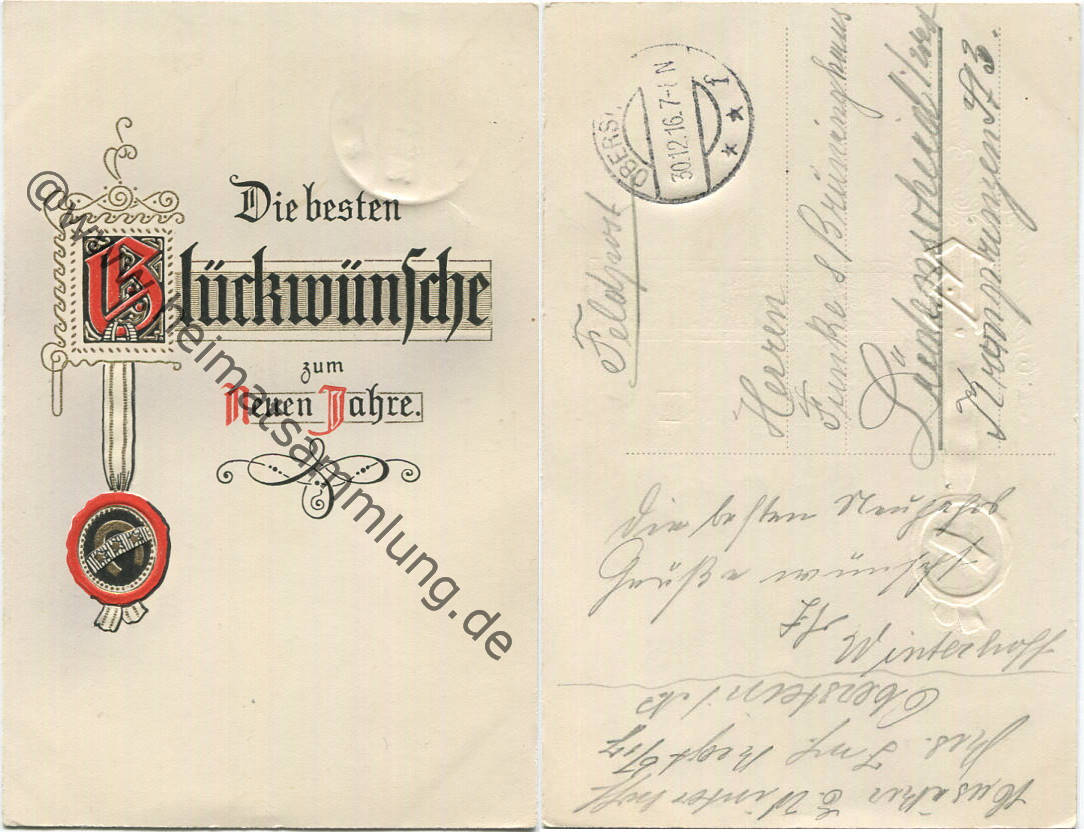 Die besten
Glückwünsche
zum
Neuen Jahre.
@www.heimatsammlung.de
OBERS
30.12.16.7-8 N
* * f
Feldpost
Herren
Funke & Brüninghaus
Lüdenscheid
Kronprinzenst 3.
Die besten Neujahrs
Grüße
Winterhoff
Musketier E. Winterhoff
Res. Inf. Regt
Oberstein